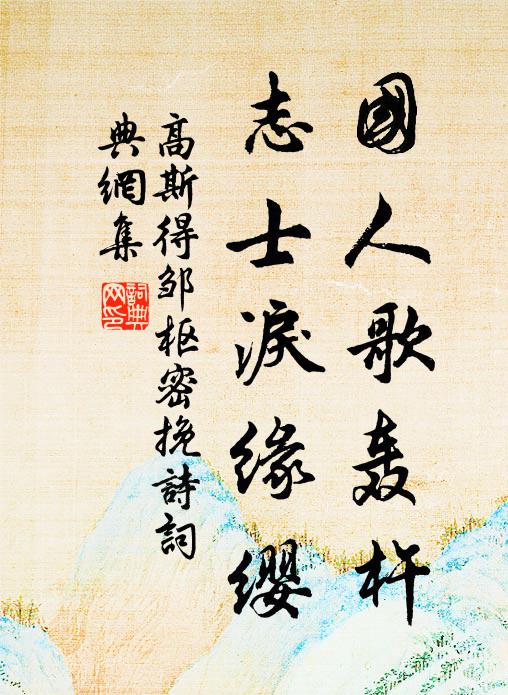 國人歌轰杵
志士淚緣纓
高斯得邹枢密挽詩詞
典網集
詞典
网印